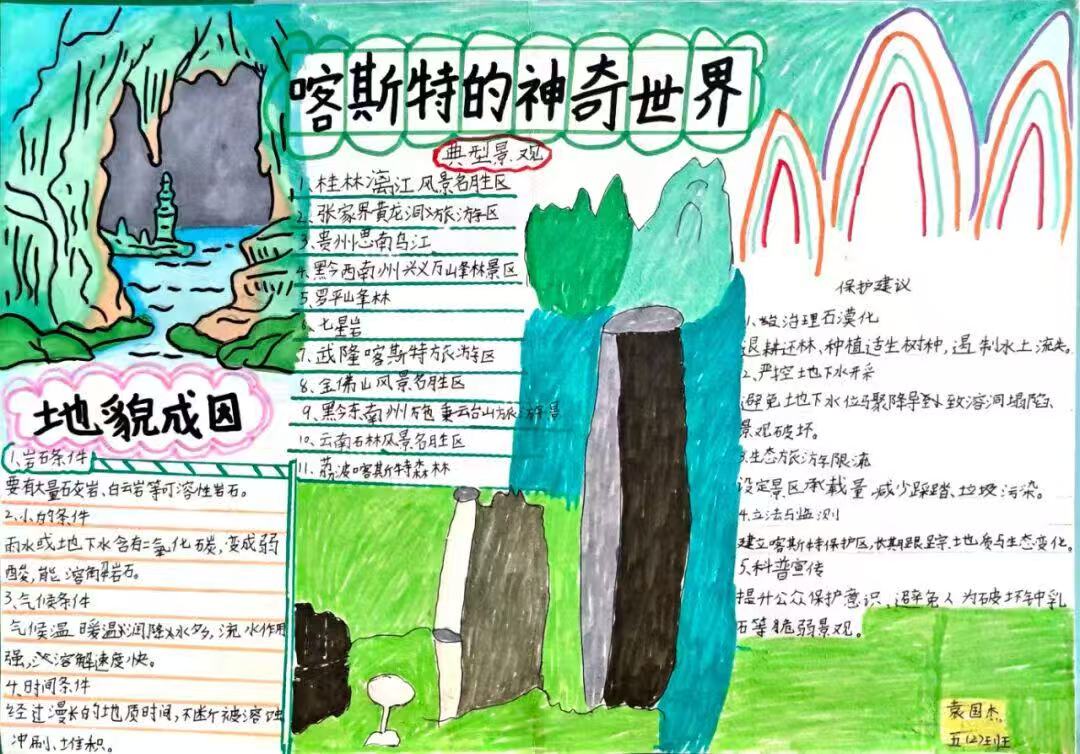 喀斯特的神奇世界
典型景观
1、桂林漓江风景名胜区
2、张家界黄龙洞旅游区
3、贵州思南乌江
4、黔西南州兴义万山峰林景区
5、罗平山峰林
6、七星岩
7、武隆喀斯特旅游区
8、金佛山风景名胜区
9、黔东南州施秉云台山旅游景
10、云南石林风景名胜区
11、荔波喀斯特森林
地貌成因
1、岩石条件
要有大量石灰岩、白云岩等可溶性岩石。
2、水的条件
雨水或地下水含有二氧化碳,变成弱
酸,能溶解岩石。
3、气候条件
气候温暖湿润降水多,流水作用
强,溶解速度快。
4、时间条件
经过漫长的地质时间,不断被溶蚀
冲刷、堆积。
保护建议
1、治理石漠化
退耕还林、种植适生树种,遏制水土流失。
2、严控地下水开采
避免地下水位骤降导致溶洞塌陷、
景观破坏。
3、生态旅游限流
设定景区承载量,减少踩踏、垃圾污染。
4、立法与监测
建立喀斯特保护区,长期跟踪土地质与生态变化。
5、科普宣传
提升公众保护意识,避免人为破坏钟乳
石等脆弱景观。
袁国杰
五(2)班